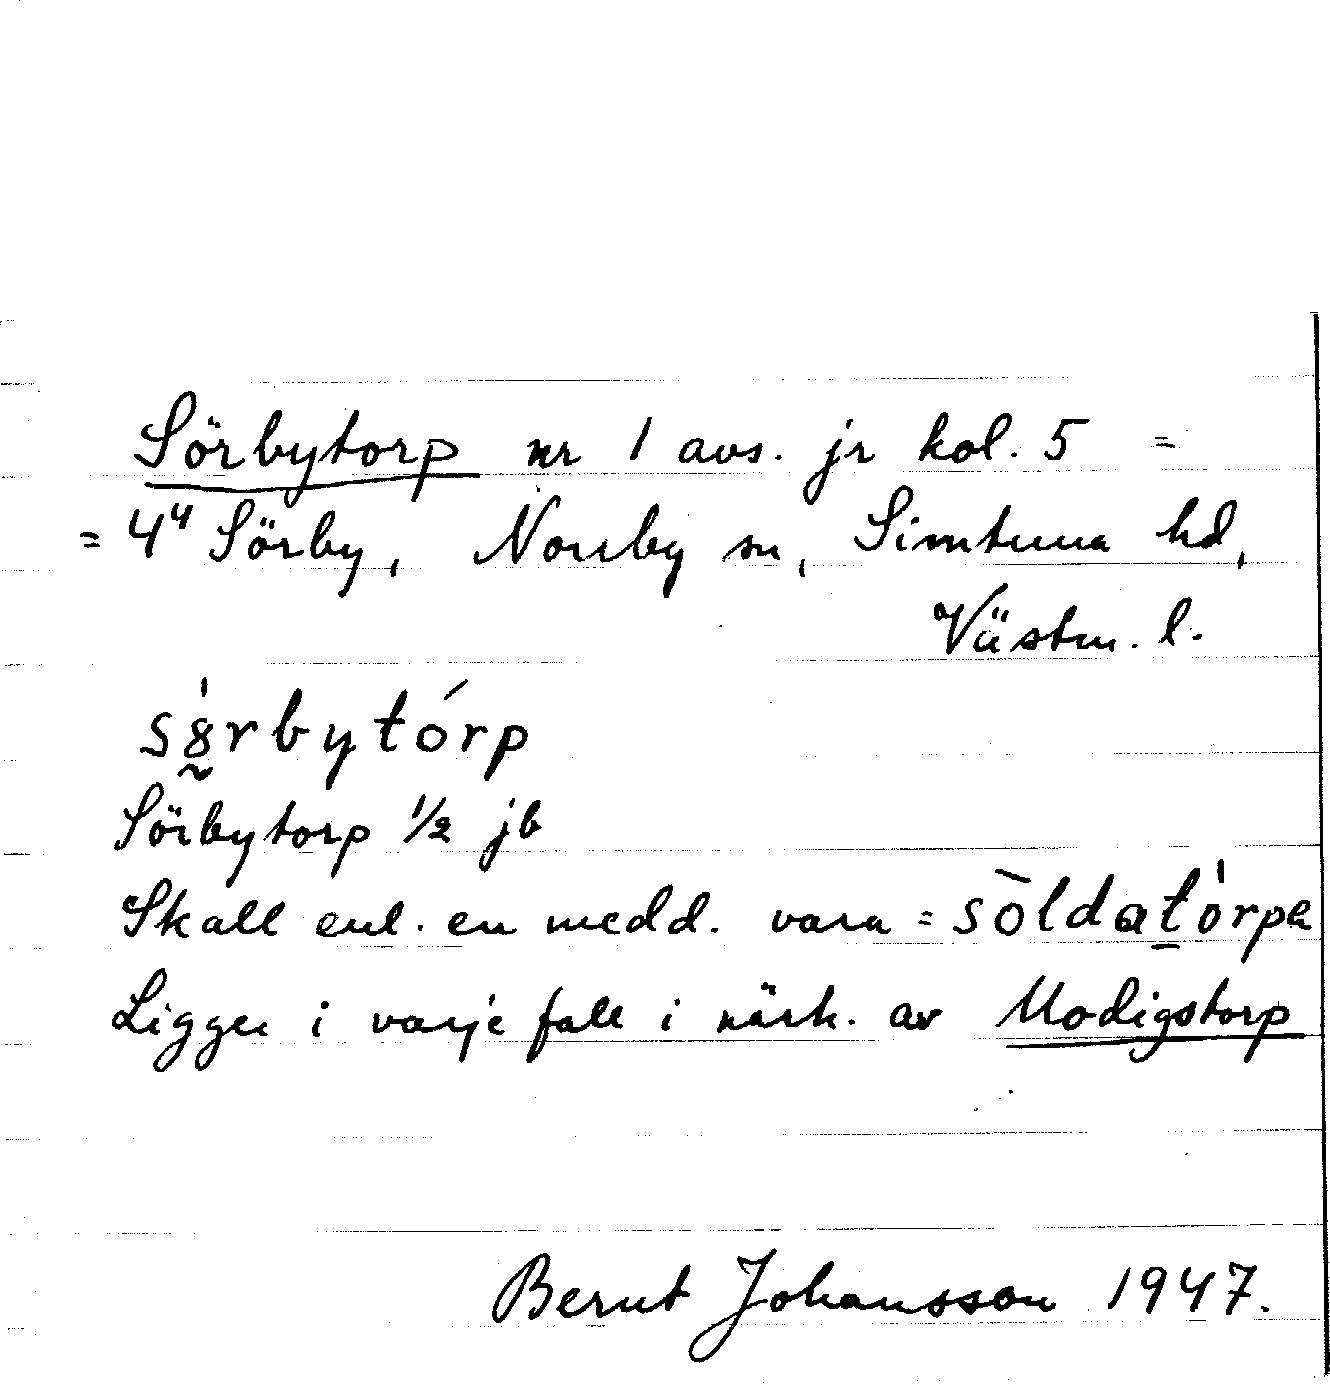 Sörbytorp nr 1 avs. jr kol. 5 =
= 4⁴ Sörby, Norrby sn, Simtuna hd,
Västm. l.
s8̰̍rbytórp
Sörbytorp 1/2 jb
Skall enl. en medd. vara = sò̄ldat̠o̍rpa
Ligger i varje fall i närh. av Modigstorp
Bernt Johansson 1947.